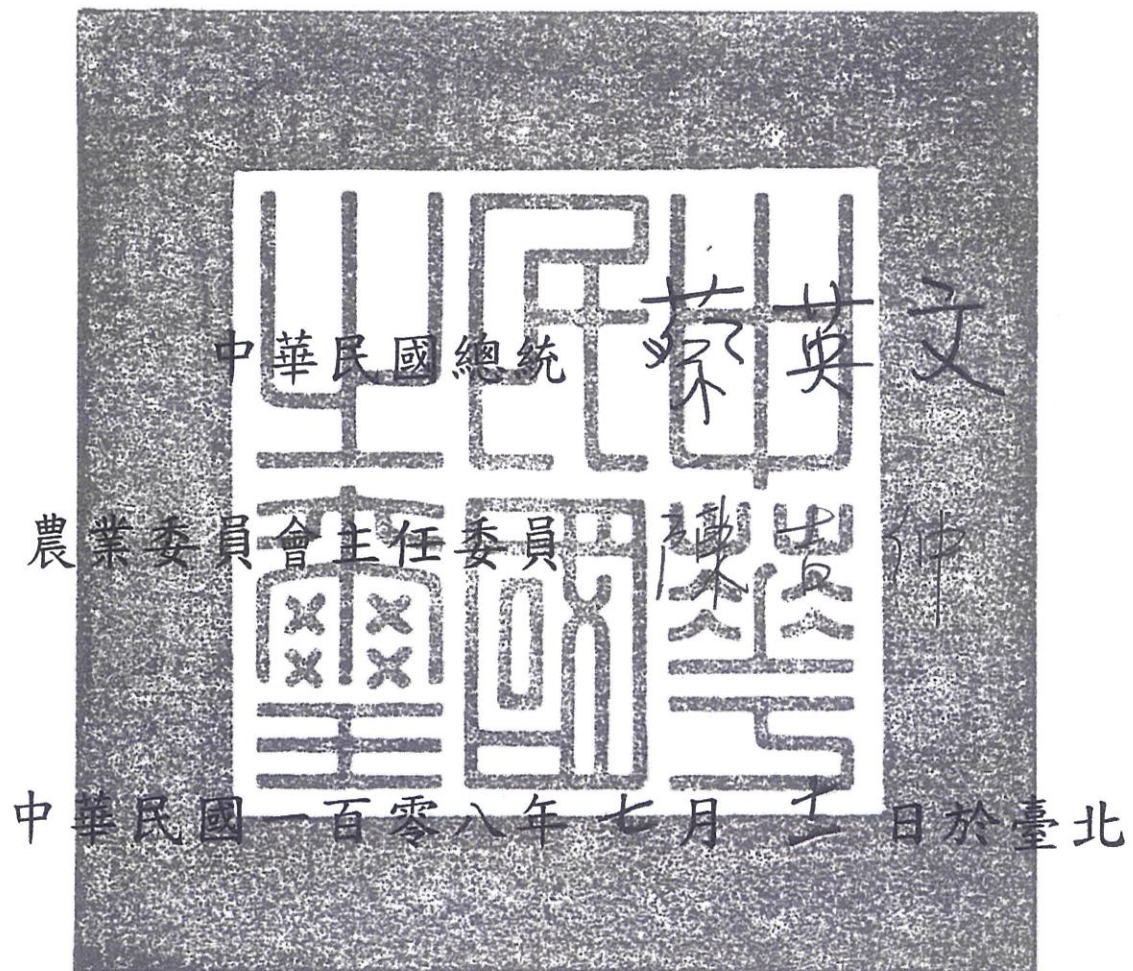 中華民國之璽
中華民國總統 蔡英文
農業委員會主任委員 陳吉仲
中華民國一百零八年七月 日於臺北